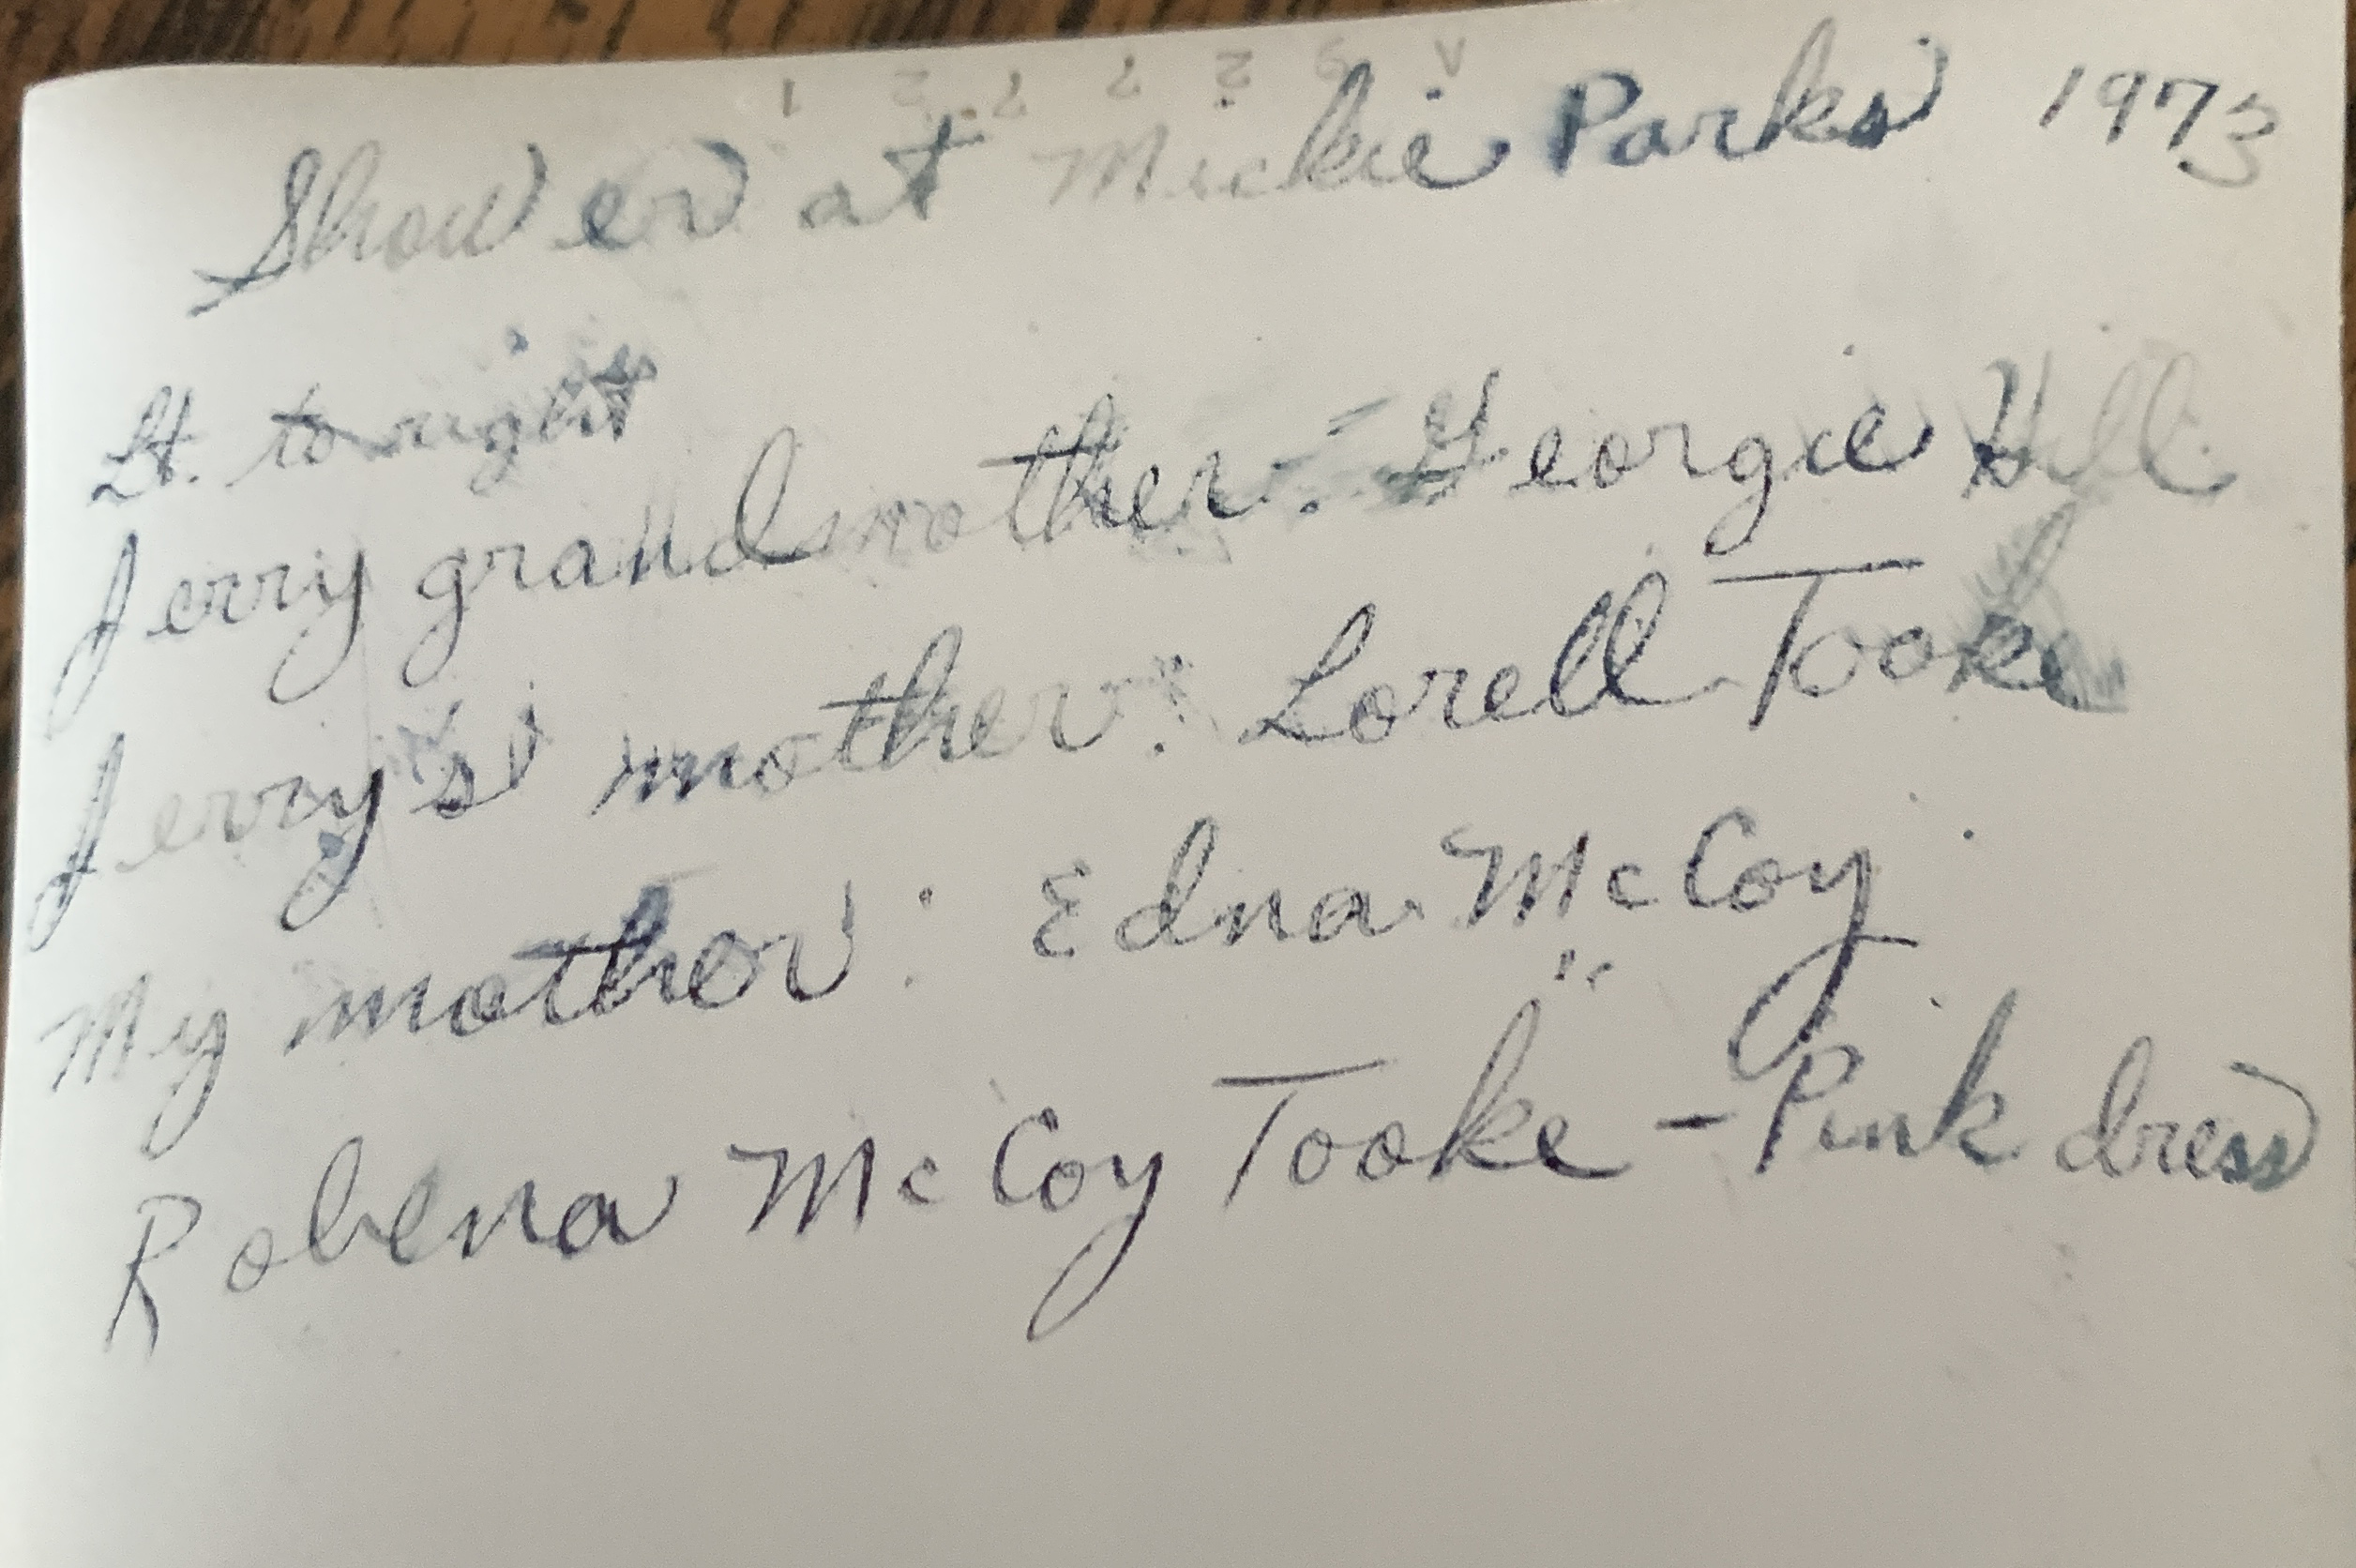 Shower at Mickie Parks 1973
Lt. to right
Jerry grandmother: Georgie Hill
Jerry's mother: Lorell Tooke
My mother: Edna McCoy
Robena McCoy Tooke - Pink dress